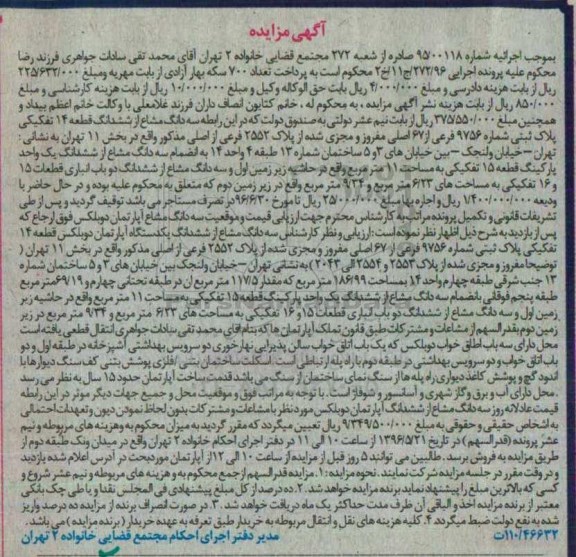 آگهی مزایده
بموجب اجرائیه شماره 9500118 صادره از شعبه 272 مجتمع قضایی خانواده 2 تهران آقای محمد تقی سادات جواهری فرزند رضا
محکوم علیه پرونده اجرایی 272/96/ج11/خ2 محکوم است به پرداخت تعداد 700 سکه بهار آزادی از بابت مهریه ومبلغ 225/632/000
ریال از بابت هزینه دادرسی و مبلغ 4/000/000 ریال بابت حق الوکاله وکیل و مبلغ 10/000/000 ریال از بابت هزینه کارشناسی و مبلغ
850/000 ریال از بابت هزینه نشر آگهی مزایده، به محکوم له، خانم کتایون انصاف داران فرزند غلامعلی با وکالت خانم اعظم بیداد و
همچنین مبلغ 375/550/000 ریال از بابت نیم عشر دولتی به صندوق دولت که در این رابطه سه دانگ مشاع از ششدانگ قطعه 14 تفکیکی
پلاک ثبتی شماره 9756 فرعی از 67 اصلی مفروز و مجزی شده از پلاک 2552 فرعی از اصلی مذکور واقع در بخش 11 تهران به نشانی :
تهران – خیابان ولنجک – بین خیابان های 3 و 5 ساختمان شماره 13 طبقه 4 واحد 14 به انضمام سه دانگ مشاع از ششدانگ یک واحد
پارکینگ قطعه 15 تفکیکی به مساحت 11 متر مربع واقع در حاشیه زیر زمین اول و سه دانگ مشاع از ششدانگ دو باب انباری قطعات 15
و 16 تفکیکی به مساحت های 6/23 متر مربع و 9/34 متر مربع واقع در زیر زمین دوم که متعلق به محکوم علیه بوده و در حال حاضر با
ودیعه 1/400/000/000 ریال و اجاره بها مبلغ 25/000/000 ریال تا مورخ 96/6/30 در تصرف مستاجر می باشد توقیف گردید و پس از طی
تشریفات قانونی و تکمیل پرونده مراتب به کارشناس محترم جهت ارزیابی قیمت و موقعیت سه دانگ مشاع آپارتمان دوبلکس فوق ارجاع که
پس از بازدید به شرح ذیل اظهار نظر نموده است: ارزیابی و نظر کارشناس سه دانگ مشاع از ششدانگ یکدستگاه آپارتمان دوبلکس قطعه 14
تفکیکی پلاک ثبتی شماره 9756 فرعی از 67 اصلی مفروز و مجزی شده از پلاک 2552 فرعی از اصلی مذکور واقع در بخش 11 تهران (
توضیحا مفروز و مجزی شده از پلاک 2553 و 2554 الی 2043) به نشانی تهران – خیابان ولنجک بین خیابان های 3 و 5 ساختمان شماره
13 جنب شرقی طبقه چهارم واحد 14 بمساحت 186/99 متر مربع که مقدار 117/5 متر مربع ان در طبقه تحتانی چهارم و 69/19 متر مربع
طبقه پنجم فوقانی بانضمام سه دانگ مشاع از ششدانگ یک واحد پارکینگ قطعه 15 تفکیکی به مساحت 11 متر مربع واقع در حاشیه زیر
زمین اول و سه دانگ مشاع از ششدانگ دو باب انباری قطعات 15 و 16 تفکیکی به مساحت های 6/23 متر مربع و 9/34 متر مربع در زیر
زمین دوم بقدرالسهم از مشاعات و مشترکات طبق قانون تملک آپارتمان ها که بنام آقای محمد تقی سادات جواهری انتقال قطعی یافته است
محل دارای سه باب اطاق خواب دوبلکس که یک باب اتاق خواب سالن پذیرایی نهارخوری دو سرویس بهداشتی آشپزخانه در طبقه اول و دو
باب اتاق خواب و دو سرویس بهداشتی در طبقه دوم با راه پله ارتباطی است. اسکلت ساختمان بتنی /فلزی پوشش بتنی کف سنگ دیوارها با
اندود گچ و پوشش کاغذ دیواری راه پله ها از سنگ نمای ساختمان از سنگ می باشد قدمت ساخت آپارتمان حدود 15 سال به نظر می رسد
.محل دارای آب و برق وگاز شهری و آسانسور و شوفاژ است. با توجه به مراتب فوق و موقعیت محل و جمیع جهات دیگر موثر در این رابطه
قیمت عادلانه روز سه دانگ مشاع از ششدانگ آپارتمان دوبلکس مورد نظر با مشاعات و مشترکات بدون لحاظ نمودن دیون و تعهدات احتمالی
به اشخاص حقیقی و حقوقی به مبلغ 9/349/500/000 ریال تعیین میگردد که مقرر گردید به میزان محکوم به وهزینه های مربوطه و نیم
عشر پرونده (قدرالسهم) در تاریخ 1396/5/21 از ساعت 10 الی 11 در دفتر اجرای احکام خانواده 2 تهران واقع در میدان ونک طبقه دوم از
طریق مزایده به فروش برسد. طالبین می توانند 5 روز قبل از مزایده از ساعت 10 الی 12 از آپارتمان موردبحث در آدرس اعلام شده بازدید
و در وقت مقرر در جلسه مزایده شرکت نمایند. نحوه مزایده: 1. مزایده قدرالسهم از جمع محکوم به و هزینه های مربوطه و نیم عشر شروع و
کسی که بالاترین مبلغ را پیشنهاد نماید برنده مزایده خواهد شد. 2. ده درصد از کل مبلغ پیشنهادی فی المجلس نقدا و یا طی چک بانکی
معتبر از برنده مزایده اخذ و الباقی آن ظرف مدت حداکثر یک ماه دریافت خواهد شد. 3. در صورت انصراف برنده از مزایده ده درصد واریز
شده به نفع دولت ضبط میگردد 4. کلیه هزینه های نقل و انتقال مربوطه به خریدار طبق تعرفه به عهده خریدار (برنده مزایده) می باشد.
110/46632ت
مدیر دفتر اجرای احکام مجتمع قضایی خانواده 2 تهران